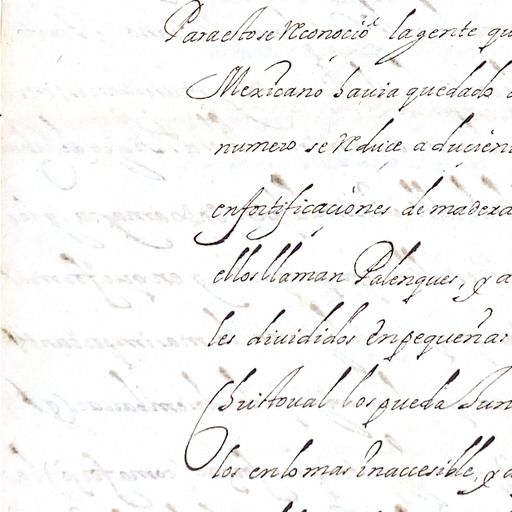 Para esto se reconocio la gente qu
Mexicano hauia quedado
numero se reduce a ducien
en fortificaciones de madera
ellos llaman Palenques, y a
les diuididos en pequeñas
Christoual los pueda Jun
los en lo mas inaccesible, y a